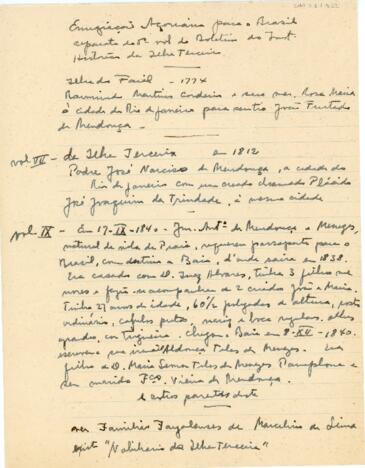 Emigração Açoriana para o Brasil
separata do 5º vol do Boletim do Inst.
Histórico da Ilha Terceira
Ilha do Faial - 1774
Raimundo Martins Cordeiro e seus mar. Rosa Maria
à cidade do Rio de Janeiro para sentro João Furtado
de Mendonça.
vol. VII - da Ilha Terceira em 1812
Padre José Narciso de Mendonça, a cidade do
Rio de Janeiro com um creado chamado Plácido
José Joaquim da Trindade, à mesma cidade
vol. IX - Em 17-IX-1840 - Jm. Antº de Mendonça e Menezes,
natural da vila da Praia, requereu passaporte para o
Brasil, com destino a Baía, d'onde saira em 1838.
Era casado com D. Inez Alvares, tinha 3 filhos me
nores e fazia-se acompanhar de 2 criados João e Maria.
Tinha 27 anos de idade, 60 ½ polegadas de altura, rosto
ordinário, cabelos pretos, nariz e boca regulares, olhos
cor trigueira. Chegou a Baía em 8-XII-1840.
escreveu a sua irmã Aldonça Teles de Menezes. Era
filho de D. Maria Teles de Menezes Pamplona e
seu marido Fco. Vieira de Mendonça.
e outros parentes deste
ver Famílias Faialenses de Marcelino de Lima
"Nobiliário da Ilha Terceira"